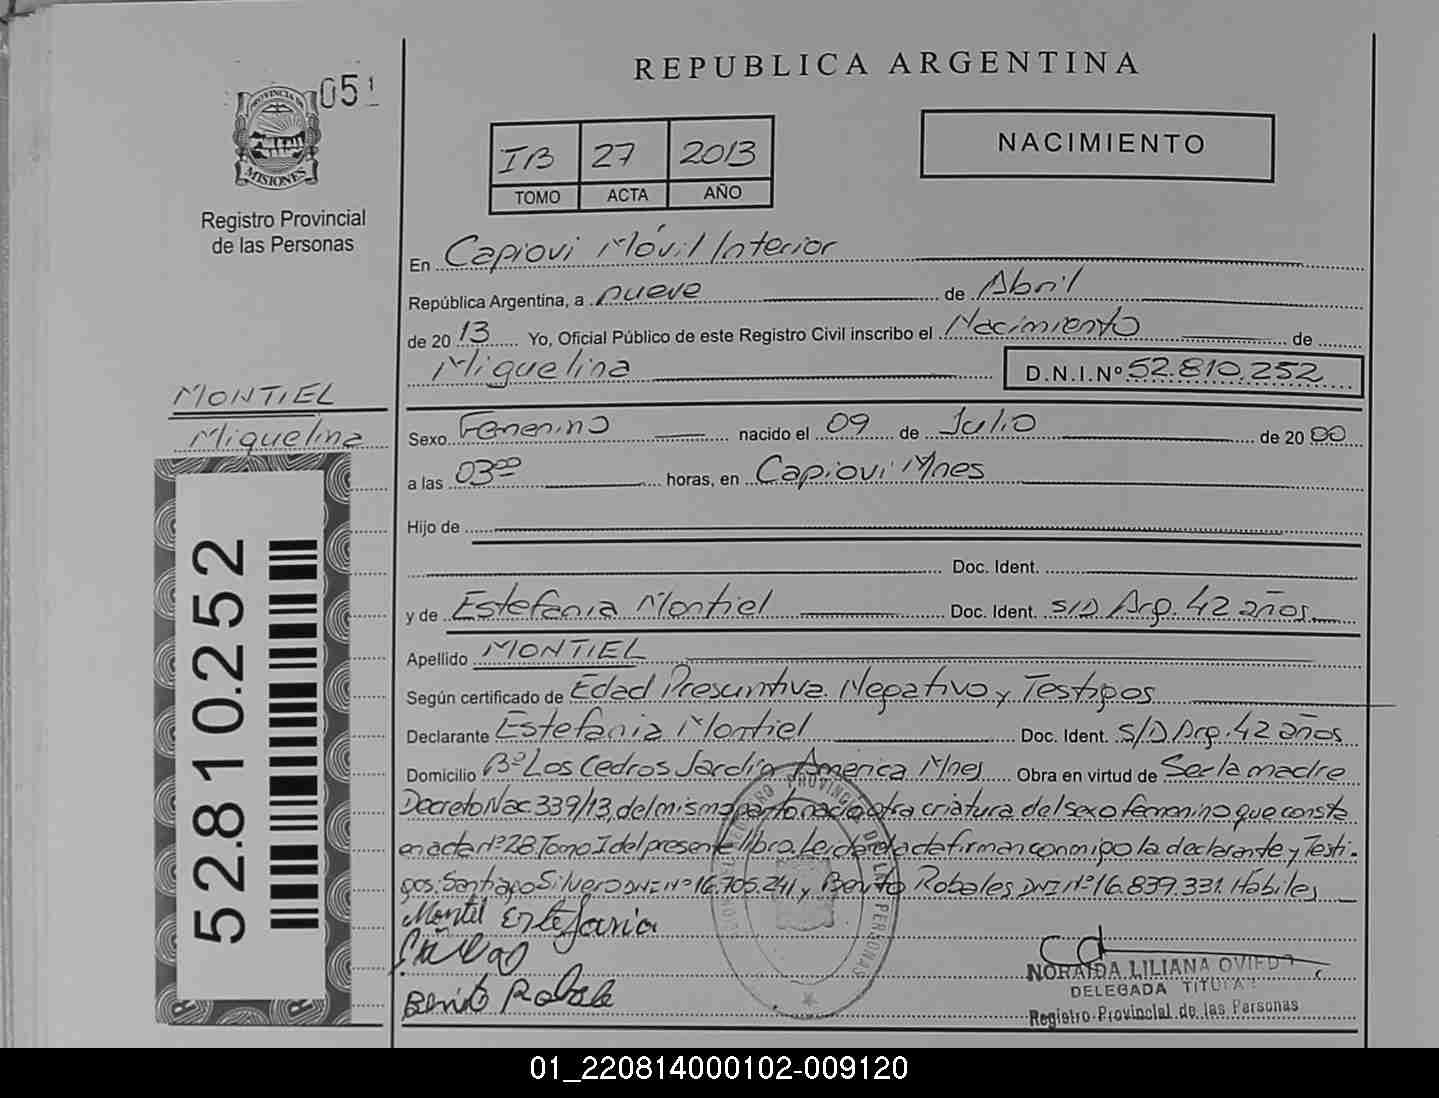 051
PROVINCIA DE
MISIONES
Registro Provincial
de las Personas
REPUBLICA ARGENTINA
IB 27 2013
TOMO ACTA AÑO
NACIMIENTO
En Capiovi Móvil Interior
República Argentina, a nueve de Abril
de 2013 Yo, Oficial Público de este Registro Civil inscribo el Nacimiento de
Miguelina D.N.I.Nº 52.810.252
MONTIEL
Miguelina
Sexo Femenino nacido el 09 de Julio de 2000
a las 03⁰⁰ horas, en Capiovi Mnes
Hijo de
Doc. Ident.
y de Estefania Montiel Doc. Ident. S/D Arg. 42 años
Apellido MONTIEL
Según certificado de Edad Presuntiva. Negativo y Testigos
Declarante Estefania Montiel Doc. Ident. S/D Arg. 42 años
Domicilio Bº Los Cedros Jardín America Mnes Obra en virtud de Ser la madre
Decreto Nac 339/13, del mismo parto nació otra criatura del sexo femenino que consta
en acta nº 28 Tomo I del presente libro. Leida el acta firman conmigo la declarante y Testi-
gos: Santiago Silvero DNI Nº 16.705.241 y Benito Robales DNI Nº 16.839.331. Hábiles
Montiel Estefania
Benito Robale
NORAIDA LILIANA OVIEDO
DELEGADA TITULAR
Registro Provincial de las Personas
52.810.252
01_220814000102-009120